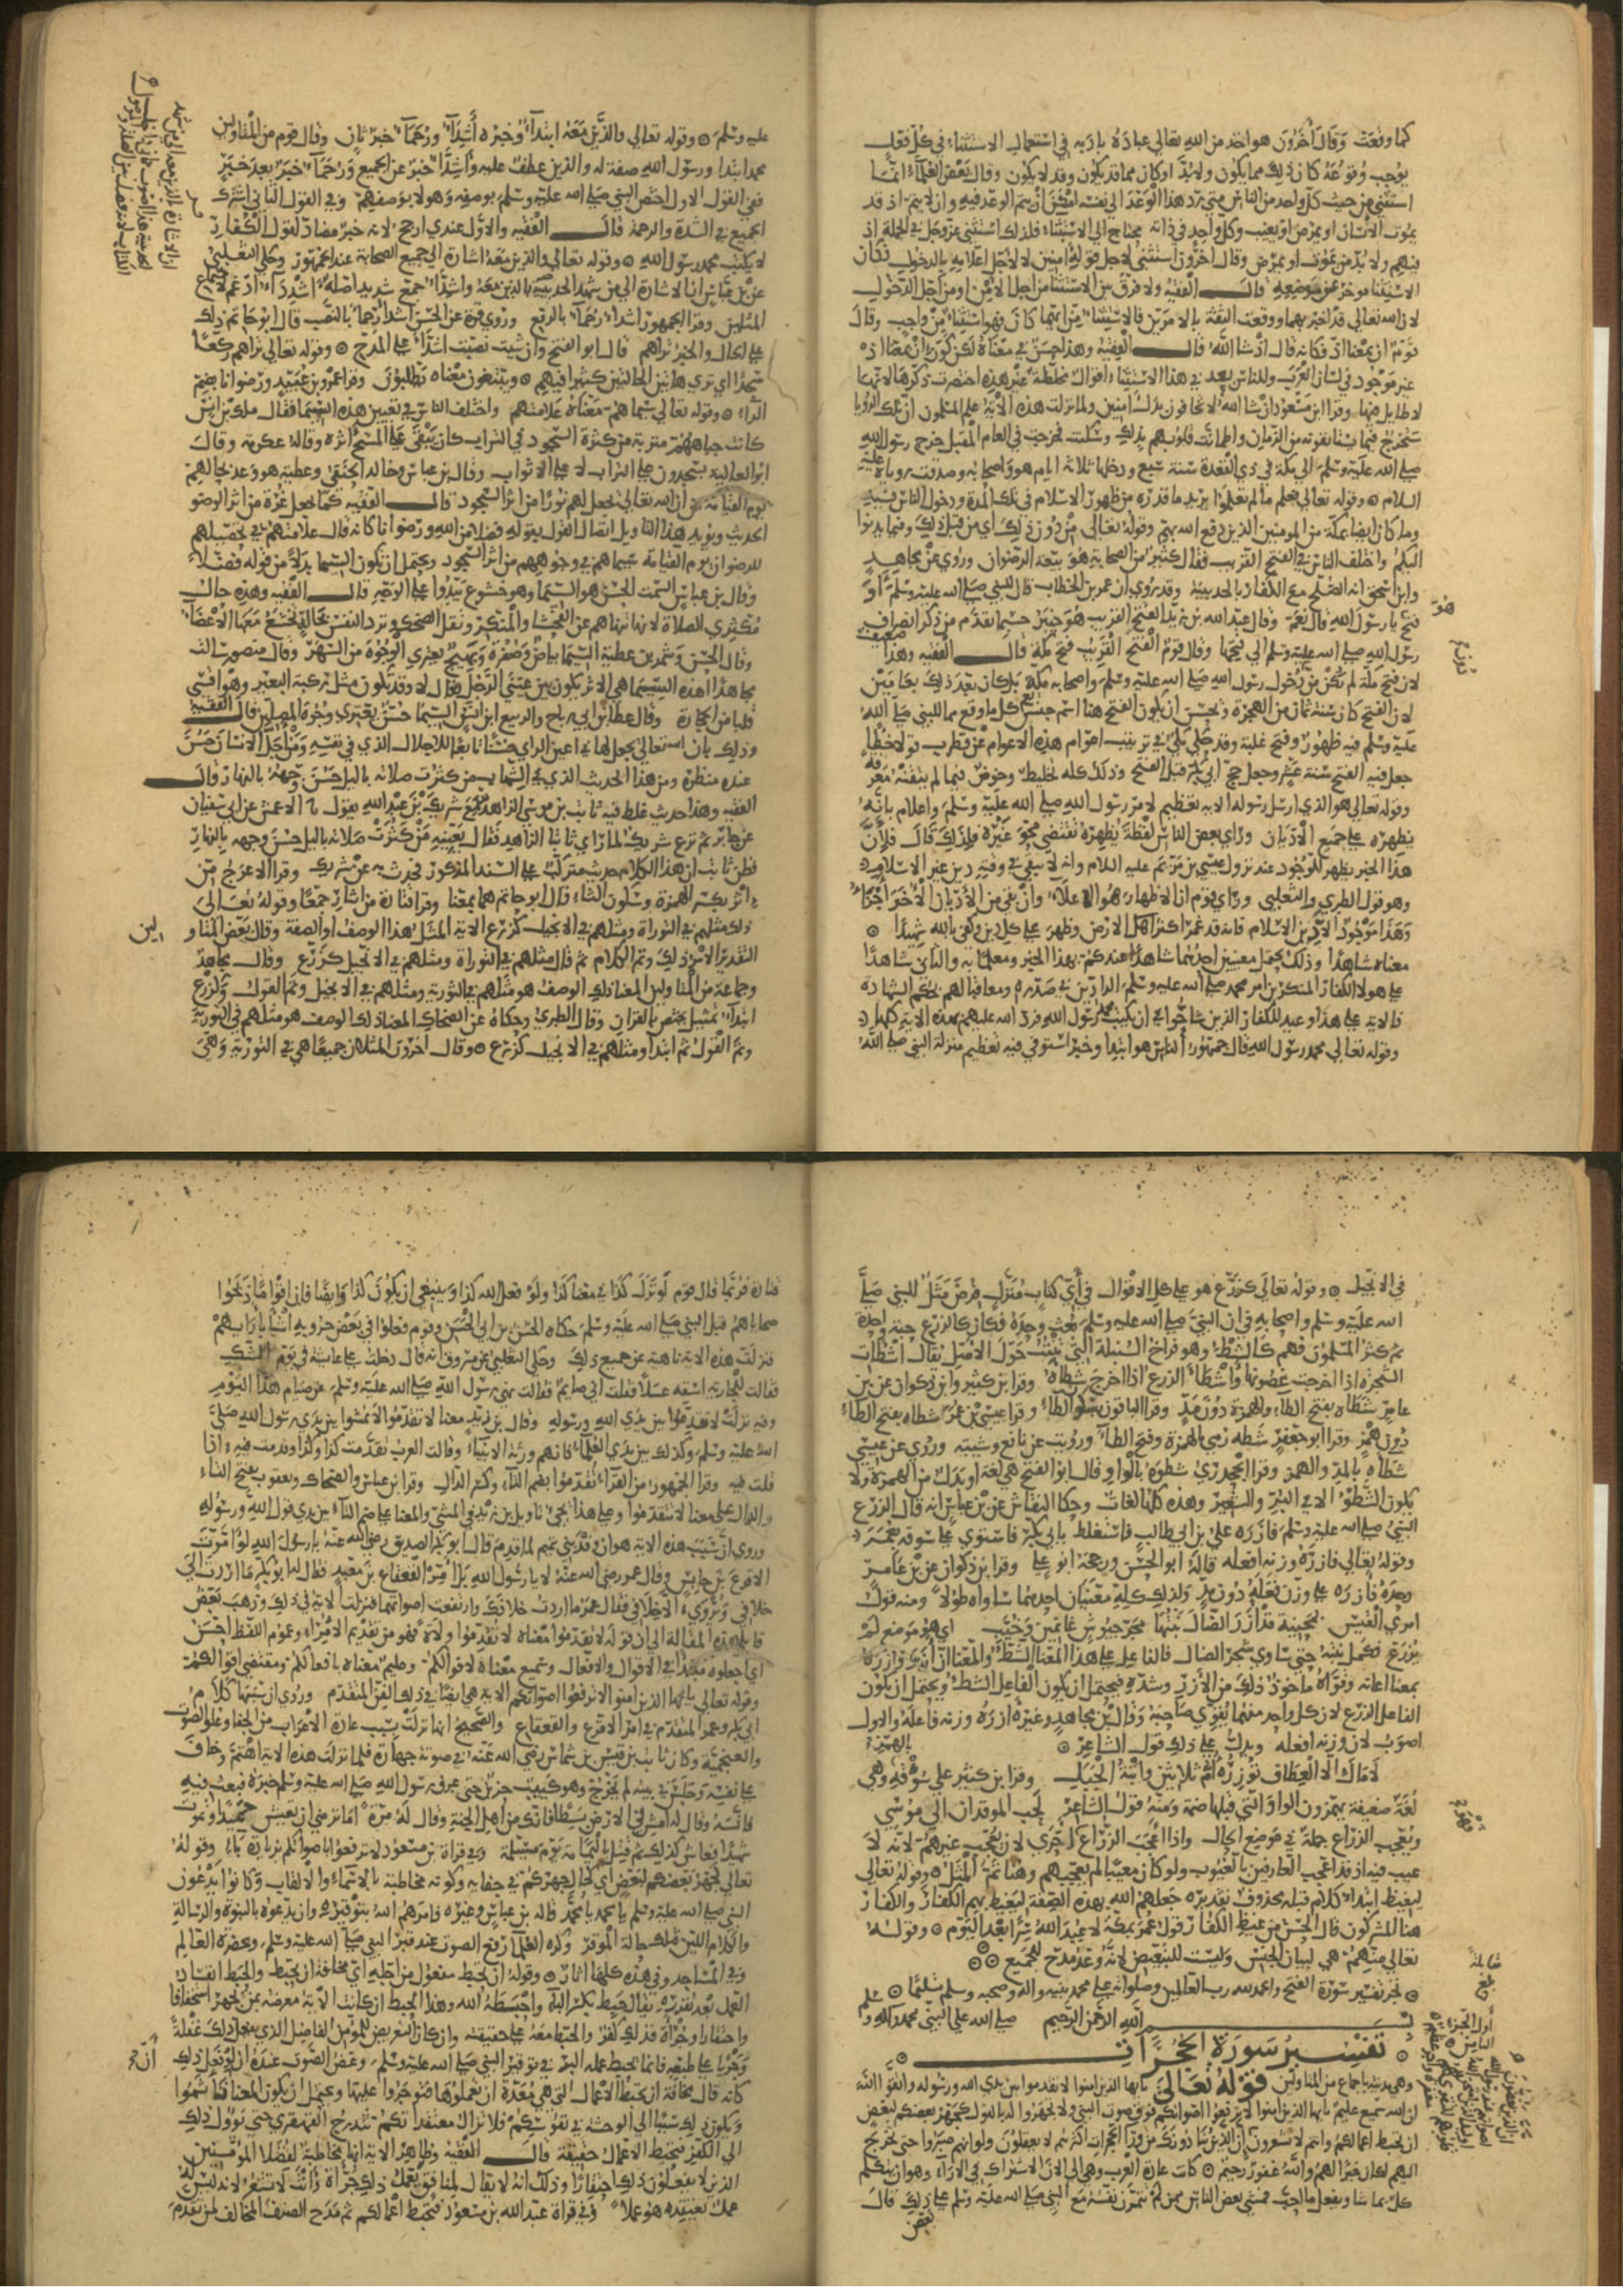 كما وقعت وقال آخرون هو اخذ من الله تعالى عباده بادبه في استعمال الاستثناء في كل فعل
يوجب وقوعه كان ذلك مما يكون ولا بد او كان مما قد يكون وقد لا يكون وقال بعض العلماء انما
استثنى من حيث كل واحد من الناس متى رد هذا الوعد الى نفسه امكن ان يتم الوعد فيه وان لا يتم اذ قد
يموت الانسان او يمرض او يغيب وكل واحد في ذاته محتاج الى الاستثناء فلذلك استثنى عز وجل في الجملة اذ
فيهم ولا بد من يموت او يمرض وقال آخرون استثنى لاجل قوله امنين لا لاجل اعلامه بالدخول فكان
الاستثنا موخر عن موضعه قال الفقيه ولا فرق بين الاستثنا من اجل الامن او من اجل الدخول
لان الله تعالى قد اخبر بهما ووقعت الثقة بالامرين فالاستثنا من ايهما كان فهو استثنا من واجب وقال
قوم ان بمعنا اذ فكانه قال اذ شا الله قال الفقيه وهذا حسن في معناه لكن كون ان بمعنا اذ
غير موجود في لسان العرب وللناس بعد في هذا الاستثناء اقوال مخلطة غير هذه اختصرت ذكرها لانها
لا طايل فيها وقرا ابن مسعود ان شا الله لا تخافون بدل امنين ولما نزلت هذه الاية علم المسلمون ان تلك الرويا
ستخرج فيما يستانفونه من الزمان واطمانت قلوبهم بذلك وسكنت فخرجت في العام المقبل خرج رسول الله
صلى الله عليه وسلم الى مكة في ذي القعدة سنة سبع ودخلها ثلاثة ايام هو واصحابه وصدقت روياه عليه
السلام وقوله تعالى فعلم ما لم تعلموا يريد ما قدره من ظهور الاسلام في تلك المدة ودخول الناس فيه
وما كان ايضا بمكة من المومنين الذين دفع الله بهم وقوله تعالى من دون ذلك اي من قبل ذلك وفيما يدنوا
اليكم واختلف الناس في الفتح القريب فقال كثير من الصحابة هو بيعة الرضوان وروي عن مجاهد
وابن اسحق انه الصلح مع الكفار بالحديبية وقد روي ان عمر بن الخطاب قال للنبي صلى الله عليه وسلم او
هو
فتح يا رسول الله قال نعم وقال عبد الله بن زيد الفتح القريب هو خيبر حسبما تقدم من ذكر انصراف
رسول الله صلى الله عليه وسلم الى فتحها وقال قوم الفتح القريب فتح مكة قال الفقيه وهذا ضعيف
لان فتح مكة لم يكن من دخول رسول الله صلى الله عليه وسلم واصحابه مكة بل كان بعد ذلك بعامين
لان الفتح كان سنة ثمان من الهجرة ويحسن ان يكون الفتح هنا اسم جنس يعم كل ما وقع مما للنبي صلى الله
عليه وسلم فيه ظهور وفتح غلبة وقد حكى مكي في ترتيب اعوام هذه الاعوام عن قطرب قولا خطا
جعل فيه الفتح سنة عشر وجعل حج ابي بكر قبل الفتح وذلك كله تخليط وخوض فيما لم يتقنه معرفة
وقوله تعالى هو الذي ارسل رسوله الاية تعظيم لامر رسول الله صلى الله عليه وسلم واعلام بانه
يظهره على جميع الاديان وراى بعض الناس لفظة يظهره تقتضي محو غيره فلذلك قال فلان
هذا الخبر يظهر للوجود عند نزول عيسى بن مريم عليه السلام وانه لا يبقى في وقته دين غير الاسلام
وهو قول الطبري والثعلبي وراى قوم ان الاظهار هو الاعلاء وان بقي من الاديان الاخر اجزاء
وهذا موجود الان في الاسلام فانه قد عم اكثر اهل الارض وظهر على كل دين وكفى بالله شهيدا
معناه شاهدا وذلك يحتمل معنيين احدهما شاهدا عندكم بهذا الخبر ومعلما به والثاني شاهدا
على هولا الكفار المنكرين امر محمد صلى الله عليه وسلم الرادين في صدره ومعاقبا لهم بحكم الشهادة
فالاية على هذا وعيد للكفار الذين شاحوا في ان يكتب محمد رسول الله فرد الله عليهم بهذه الاية كلها
وقوله تعالى محمد رسول الله قال جمهور الناس هو ابتدا وخبر استوفي فيه تعظيم منزلة النبي صلى الله
عليه وسلم وقوله تعالى والذين معه ابتداء وخبره اشداء ورحماء خبر ثان وقال قوم من المتاولين
محمد ابتدا ورسول الله صفة له والذين عطف عليه واشداء خبر عن الجميع ورحماء خبر بعد خبر
ففي القول الاول اختص النبي صلى الله عليه وسلم بوصفه وهولا بوصفهم وفي القول الثاني اشترك
الجميع في الشدة والرحمة قال الفقيه والاول عندي ارجح لانه خبر مضاد لقول الكفار
لا تكتب محمد رسول الله وقوله تعالى والذين معه اشارة الى جميع الصحابة عند الجمهور وحكى الثعلبي
عن بن عباس ان الاشارة الى من شهد الحديبية بالذين معه واشداء جمع شديد اصله اشدداء ادغم لاجتماع
المثلين وقرا الجمهور اشداء رحماء بالرفع وروى قرة عن الحسن اشداء رحماء بالنصب قال ابو حاتم ذلك
على الحال والخبر تراهم قال ابو الفتح وان شيت نصبت اشداء على المدح وقوله تعالى تراهم ركعا
سجدا اي ترى هاتين الحالتين كثيرا فيهم ويبتغون معناه يطلبون وقرا عمرو بن عبيد ورضوانا بضم
الراء وقوله تعالى سيماهم معناه علامتهم واختلف الناس في تعيين هذه السيما فقال ملك بن انس
كانت جباههم متربة من كثرة السجود في التراب كان يبقى على المسح اثره وقاله عكرمة وقال
ابو العالية يسجدون على التراب لا على الاثواب وقال بن عباس وخالد الحنفي وعطية هو وعد بحالهم
يوم القيامة من ان الله تعالى يجعل لهم نورا من اثر السجود قال الفقيه كما يجعل غرة من اثر الوضو
الحديث ويويد هذا التاويل اتصال القول بقوله فضلا من الله ورضوانا كانه قال علامتهم في تحصيلهم
للرضوان يوم القيامة سيماهم في وجوههم من اثر السجود ويحتمل ان تكون السيما بدلا من قوله فضلا
وقال بن عباس السمت الحسن هو السيما وهو خشوع يبدوا على الوجه قال الفقيه وهذه حالة
مكثري الصلاة لانها تنهاهم عن الفحشا والمنكر وتقل الضحك وترد النفس بحالة تخشع معها الاعضاء
وقال الحسن وشمر بن عطية السيما بياض وصفرة وتهييج يعتري الوجوه من السهر وقال منصور سالت
مجاهدا اهذه السيما هي الاثر يكون بين عيني الرجل فقال لا وقد تكون مثل ركبة البعير وهو اقسى
قلبا من الحجارة وقال عطا بن ابي رباح والربيع ابن انس السيما حسن يعتري وجوه المصلين قال الفقيه
وذلك بان الله تعالى يجعل لها في اعين الراي حسنا تابعا للاجلال الذي في نفسه ومن اجل الانسان حسن
عنده منظره ومن هذا الحديث الذي في الشهاب من كثرت صلاته بالليل حسن وجهه بالنهار قال
الفقيه وهذا حديث غلط فيه ثابت بن موسى الزاهد سمع شريك بن عبد الله يقول نا الاعمش عن ابي سفيان
عن جابر ثم نزع شريك لما راى ثابتا الزاهد فقال يعنيه من كثرت صلاته بالليل حسن وجهه بالنهار
فظن ثابت ان هذا الكلام حديث متركب على السند المذكور فحدث به عن شريك وقرا الاعرج من
اثر بكسر الهمزة وسكون الثاء قال ابو حاتم هما بمعنا وقرا قتادة من اثار جمعا وقوله تعالى
ذلك مثلهم في التوراة ومثلهم في الانجيل كزرع الاية المثل هنا الوصف او الصفة وقال بعض المتاو
لين
التقدير الامر ذلك وتم الكلام ثم قال مثلهم في التوراة ومثلهم في الانجيل كزرع وقال مجاهد
وجماعة من المتاولين المعنا ذلك الوصف هو مثلهم في التورية ومثلهم في الانجيل وتم القول وكزرع
ابتداء تمثيل يختص بالقران وقال الطبري وحكاه عن الضحاك المعنا ذلك الوصف هو مثلهم في التورية
وتم القول ثم ابتدا ومثلهم في الانجيل كزرع وقال آخرون المثلان جميعا هي في التورية وهي
في الانجيل وقوله تعالى كزرع هو على كل الاقوال في اي كتاب منزل فرض مثل للنبي صلى
الله عليه وسلم واصحابه في ان النبي صلى الله عليه وسلم بعث وحده فكان كالزرع حبة واحدة
ثم كثر المسلمون فهم كالشطء وهو فراخ السنبلة التي تنبت حول الاصل يقال اشطات
الشجرة اذا اخرجت غصونها واشطا الزرع اذا اخرج شطاه وقرا بن كثير وابن ذكوان عن بن
عامر شطاه بفتح الطاء والهمزة دون مد وقرا الباقون بسكون الطاء وقرا عيسى بن عمر شطاه بفتح الطاء
دون همز وقرا ابو جعفر شطه رمى الهمزة وفتح الطاء ورويت عن نافع وشيبة وروي عن عيسى
شطاه بالمد والهمز وقرا الجحدري شطوه بالواو وقال ابو الفتح هي لغة او بدل من الهمزة ولا
يكون الشطو الا في البر والشعير وهذه كلها لغات وحكا النقاش عن بن عباس انه قال الزرع
النبي صلى الله عليه وسلم فازره علي بن ابي طالب فاستغلظ بابي بكر فاستوى على سوقه بعمر
وقوله تعالى فازره وزنه افعله قاله ابو الحسن ورجحه ابو علي وقرا بن ذكوان عن بن عامر
وحده فازره على وزن فعله دون مد ولذلك كله معنيان احدهما ساواه طولا ومنه قول
امرئ القيس بمحنية قد ازر الضال نبتها مجر جيوش غانمين وخيب اي هو موضع لم
يزرع فكمل نبته حتى ساوى شجر الضال فالفاعل على هذا المعنا الشطء والمعنا الثاني ازره وازره
بمعنا اعانه وقواه ماخوذ ذلك من الازر وشده فيحتمل ان يكون الفاعل الشطء ويحتمل ان يكون
الفاعل الزرع لان كل واحد منهما يقوي صاحبه وقال بن مجاهد وغيره ازره وزنه فاعله والاول
اصوب لان وزنه افعله ويدل على ذلك قول الشاعر
لا مال الا العطاف توزره ام ثلاثين وابنة الجبل وقرا بن كثير على سؤقه بالهمز وهي
لغة ضعيفة يهمزون الواو التي قبلها ضمة ومنه قول الشاعر لحب الموقدان الي موسى
ويعجب الزراع جملة في موضع الحال واذا اعجب الزراع احرى لان يعجب غيرهم لانه لا
عيب فيه اذ قد اعجب العارفين بالعيوب ولو كان معيبا لم يعجبهم وهنا تم المثل وقوله تعالى
ليغيظ ابتداء كلام قبله محذوف تقديره جعلهم الله بهذه الصفة ليغيظ بهم الكفار والكفار
هنا المشركون قال الحسن من غيظ الكفار قول عمر بمكة لا عبد الله سرا بعد اليوم وقوله
تعالى منهم هي لبيان الجنس وليست للتبعيض لانه وعد مدح للجميع
نجز تفسير سورة الفتح والحمد لله رب العالمين وصلواته على محمد نبيه واله وصحبه وسلم تسليما
بسم الله الرحمن الرحيم صلى الله على النبي محمد واله وسلم
تفسير سورة الحجرات
وهي مدنية باجماع من المتاولين قوله تعالى يا ايها الذين امنوا لا تقدموا بين يدي الله ورسوله واتقوا الله
ان الله سميع عليم يا ايها الذين امنوا لا ترفعوا اصواتكم فوق صوت النبي ولا تجهروا له بالقول كجهر بعضكم لبعض
ان تحبط اعمالكم وانتم لا تشعرون
اليهم لكان خيرا لهم والله غفور رحيم كانت عادة العرب وهي الى الان الاشتراك في الاراء وهو ان يتكلم
كل بما شا ويفعل ما احب فمشى بعض الناس ممن لم تتمرن نفسه مع النبي صلى الله عليه وسلم على ذلك قال
بعض
قتادة فربما قال قوم لو نزل كذا في معنا كذا ولو فعل الله كذا وينبغي ان يكون كذا وايضا فان قوما ذبحوا
ضحاياهم قبل النبي صلى الله عليه وسلم حكاه الحسن بن ابي الحسن وقوم فعلوا في بعض حروبه اشياء بارايهم
فنزلت هذه الاية ناهية عن جميع ذلك وحكى الثعلبي عن مسروق انه قال دخلت على عائشة في يوم الشك
فقالت للجارية اسقه عسلا فقلت اني صايم فقالت نهى رسول الله صلى الله عليه وسلم عن صيام هذا اليوم
وفيه نزلت لا تقدموا بين يدي الله ورسوله وقال بن زيد معنا لا تقدموا لا تمشوا بين يدي رسول الله صلى
الله عليه وسلم وكذلك بين يدي العلماء فانهم ورثة الانبياء وقالت العرب تقدمت كذا وكذا وقدمت فيه اذا
قلت فيه وقرا الجمهور من القراء تقدموا بضم التاء وكسر الدال وقرا بن عباس والضحاك ويعقوب بفتح التاء
والدال على معنا لا تتقدموا وعلى هذا يجي تاويل بن زيد في المشي والمعنا على ضم التاء بين يدي قول الله ورسوله
وروي ان سبب هذه الاية هو ان وفد بني تميم لما قدم قال ابو بكر الصديق رضي الله عنه يا رسول الله لو امرت
الاقرع بن حابس وقال عمر رضي الله عنه لا يا رسول الله بل امر القعقاع بن معبد فقال له ابو بكر ما اردت الى
خلافي ويروى الا خلافي فقال عمر ما اردت خلافك وارتفعت اصواتهما فنزلت الاية في ذلك وذهب بعض
قايلي هذه المقالة الى ان قوله لا تقدموا معناه لا تقدموا ولاة فهو من تقديم الامراء وعموم اللفظ احسن
اي اجعلوه مبدا في الاقوال والافعال وسميع معناه لاقوالكم وعليم معناه بافعالكم ومقتضى اقوالكم
وقوله تعالى يا ايها الذين امنوا لا ترفعوا اصواتكم الاية هي ايضا في ذلك الفن المتقدم وروي ان سببها كلام
ابي بكر وعمر المتقدم في امر الاقرع والقعقاع والصحيح انها نزلت بسبب عادة الاعراب من الجفا وعلو الصوت
والعنجهية وكان ثابت بن قيس بن شماس رضي الله عنه في صوته جهارة فلما نزلت هذه الاية اهتم وخاف
على نفسه وجلس في بيته لم يخرج وهو كئيب حزين حتى عرف رسول الله صلى الله عليه وسلم خبره فبعث فيه
فانسه وقال له امش في الارض بسطا فانك من اهل الجنة وقال له مرة اما ترضى ان تعيش حميدا وتموت
شهيدا فعاش كذلك ثم قتل باليمامة يوم مسيلمة وفي قراة بن مسعود لا ترفعوا باصواتكم بزيادة باء وقوله
تعالى كجهر بعضكم لبعض اي كحال جهركم في جفايه وكونه مخاطبة بالاسماء والالقاب وكانوا يدعون
النبي صلى الله عليه وسلم يا محمد يا محمد قاله بن عباس وغيره فامرهم الله بتوقيره وان يدعوه بالنبوة والرسالة
والكلام اللين فتلك حالة الموقر وكره العلماء رفع الصوت عند قبر النبي صلى الله عليه وسلم وبحضرة العالم
وفي المساجد وفي هذه كلها اثار وقوله ان تحبط مفعول من اجله اي مخافة ان تحبط والحبط افساد
العمل بعد تقرره يقال حبط بكسر الباء واحبطه الله وهذا الحبط ان كانت الاية معرضة بمن يجهر استخفافا
واحتقارا وجراة فذلك كفر والحبط معه على حقيقته وان كان التعريض للمومن الفاضل الذي يفعل ذلك غفلة
وجريا على طبعه فانما يحبط عمله البر في توقير النبي صلى الله عليه وسلم وغض الصوت عنده ان لو فعل ذلك
كانه قال مخافة ان تحبط الاعمال التي هي معدة ان تعملوها فتوجروا عليها ويحتمل ان يكون المعنا
ويكون ذلك سببا الى الوحشة في نفوسكم فلا تزال معتقداتكم تتدرج القهقرى حتى يوول ذلك
الى الكفر فتحبط الاعمال حقيقة قال الفقيه وظاهر الاية انها مخاطبة لفضلا المومنين
الذين لا يفعلون ذلك احتقارا وذلك انه لا يقال لمنافق يعمل ذلك جراة وانت لا تشعر لانه ليس له
عمل يعتقده هو عملا وفي قراة عبد الله بن مسعود فتحبط اعمالكم ثم مدح الصنف المخالف لمن تقدم